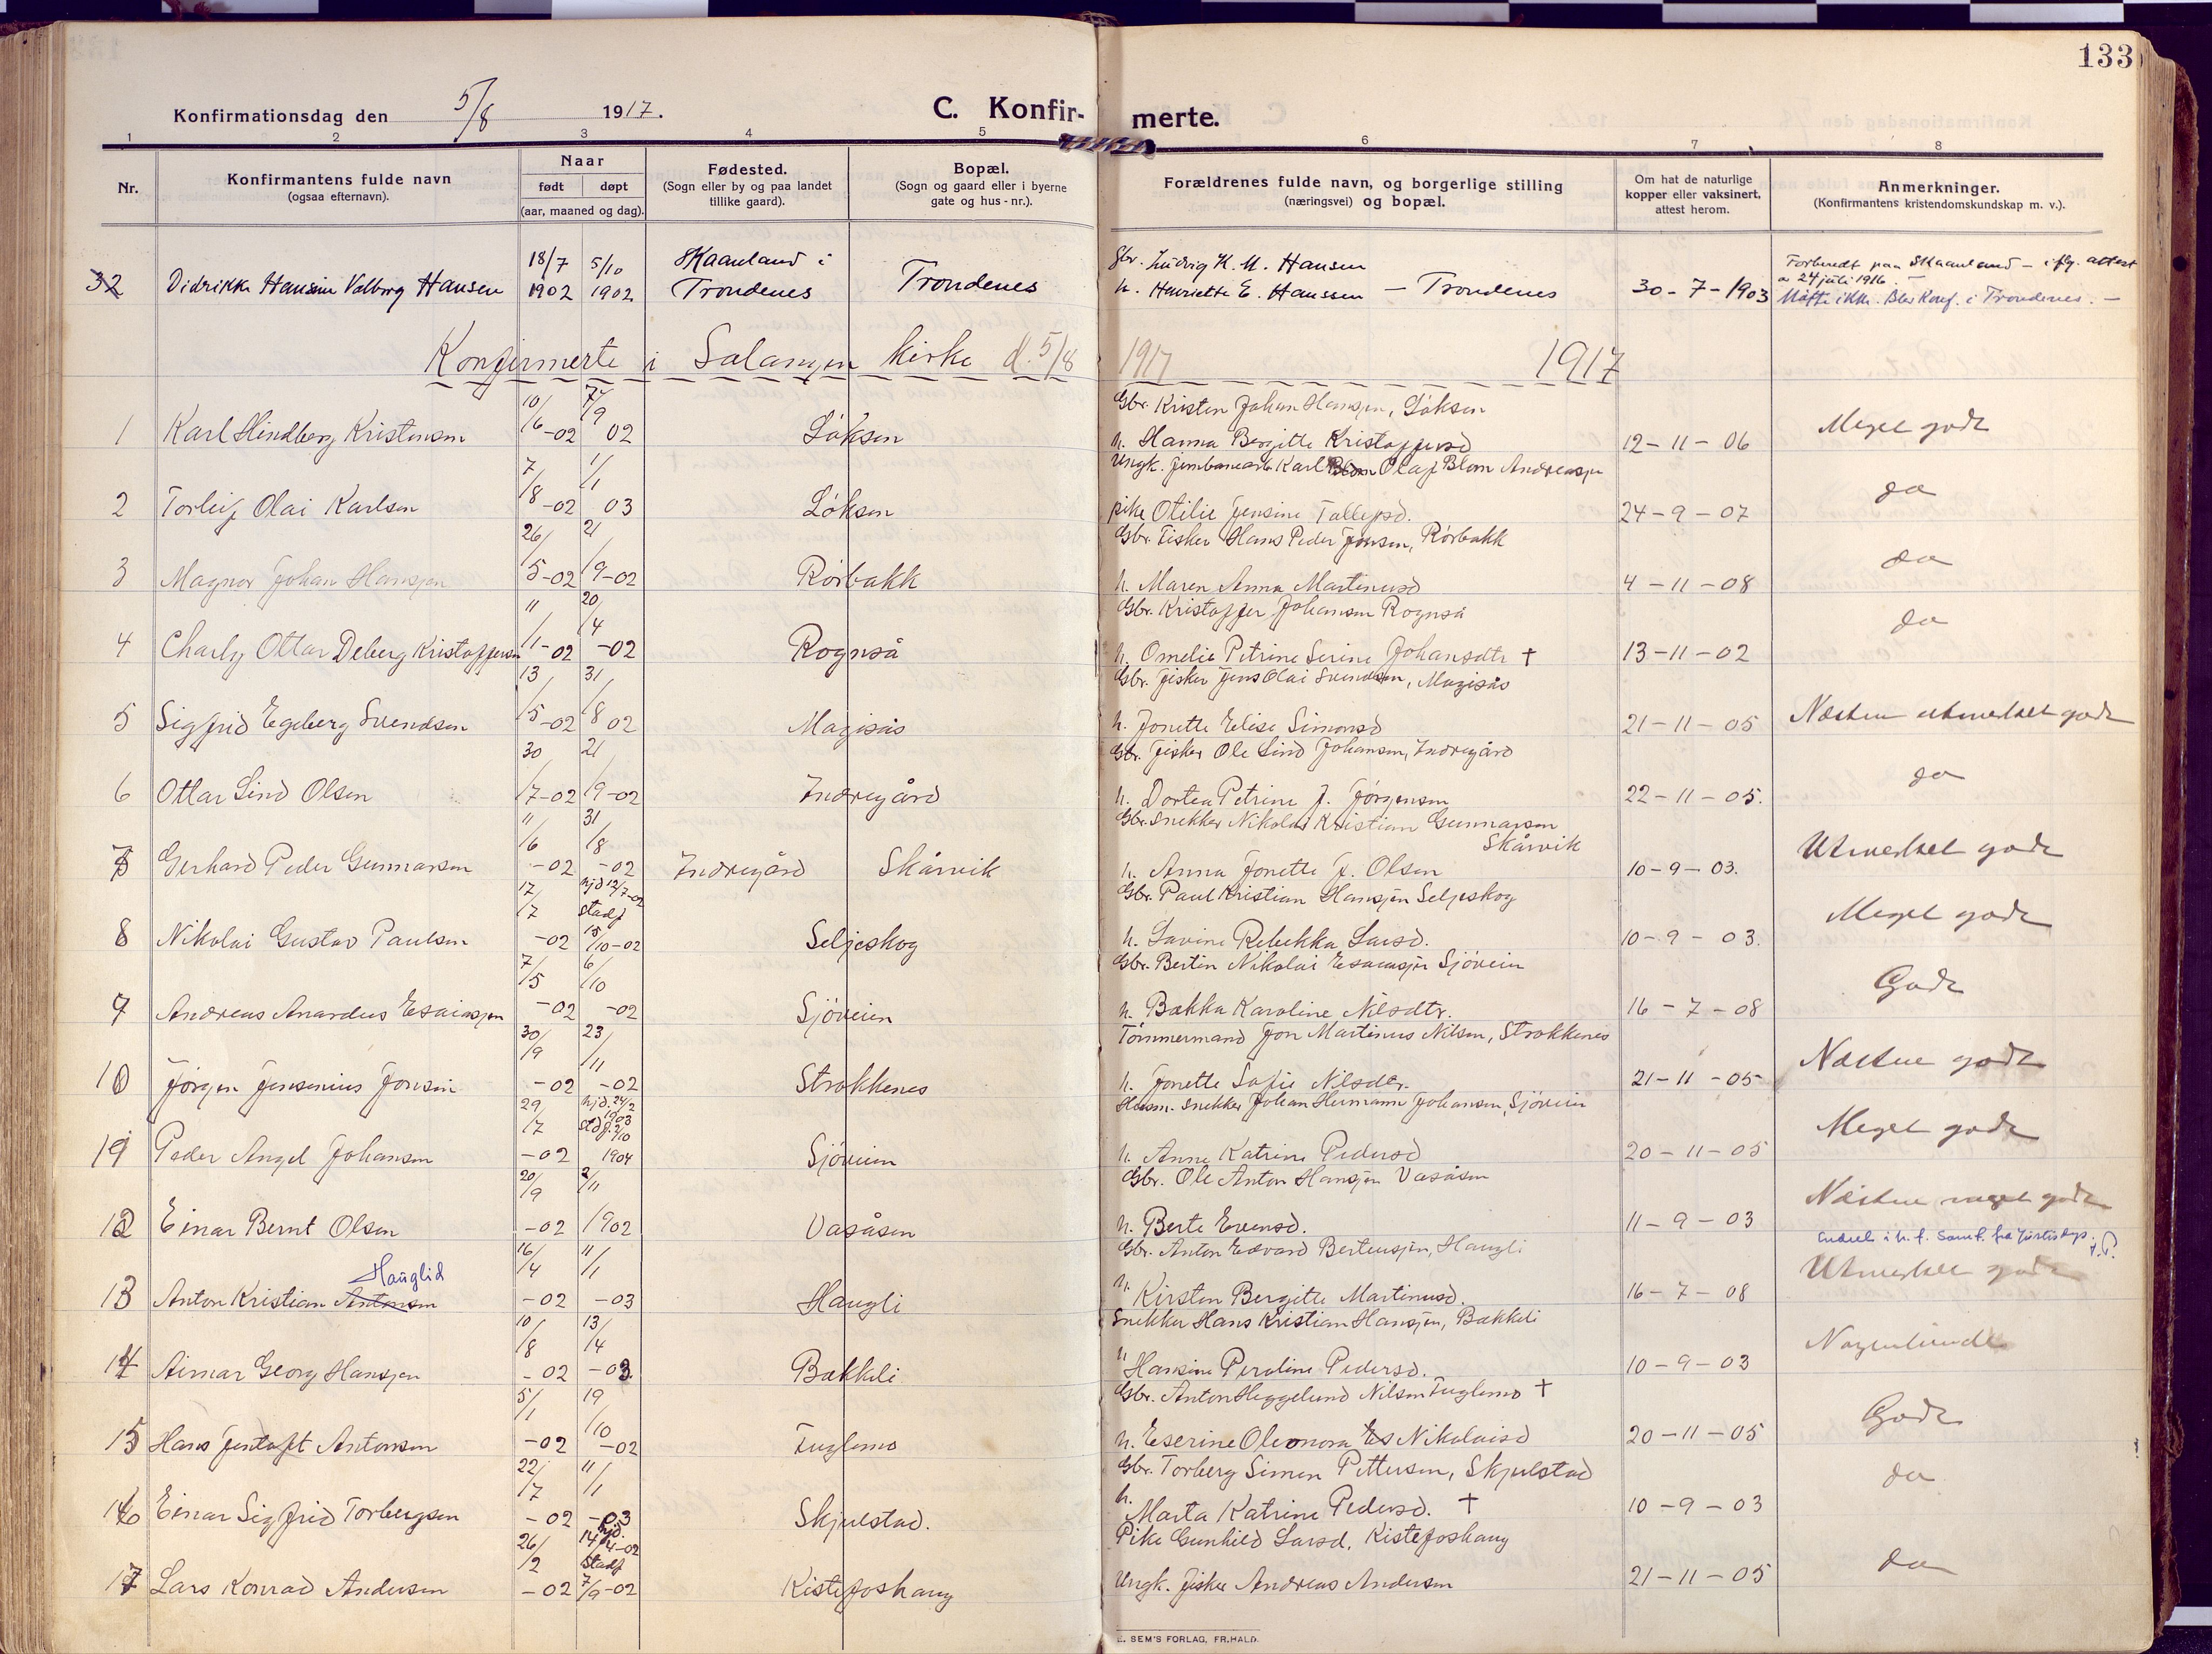 133
Konfirmationsdag den 5/8 1917.
C. Konfir- merte.
1 2 3 4 5 6 7 8
Nr.
Konfirmantens fulde navn
(ogsaa efternavn).
Naar
født døpt
(aar, maaned og dag).
Fødested.
(Sogn eller by og paa landet
tillike gaard).
Bopæl.
(Sogn og gaard eller i byerne
gate og hus-nr.).
Forældrenes fulde navn, og borgerlige stilling
(næringsvei) og bopæl.
Om hat de naturlige
kopper eller vaksinert,
attest herom.
Anmerkninger.
(Konfirmantens kristendomskundskap m. v.).
18/7 5/10 Skaanland i Gbr. Ludvig H. M. Hansen Forberedt paa Skaanland - iflg. attest
32 Didrikke Hansine Valborg Hansen 1902 1902 Trondenes Trondenes h. Henriette E. Hanssen - Trondenes 30-7-1903 a 24 juli 1916
Møtte ikke. Blev Konf. i Trondenes. -
Konfirmerte i Salangen kirke d. 5/8 1917 1917
10/ 7/ Gbr. Kristen Johan Hansen, Løksen
1 Karl Hindberg Kristensen 6-02 9 02 Løksen h. Hanna Bergitte Kristoffersd 12-11-06 Meget godt
7/ 1/ Ungk. jernbanearb Karl Olaf Blom Andreassen
2 Torleif Olai Karlsen 8-02 1 03 Løksen pike Otilie Jensine Tollefsd. 24-9-07 do
26/ 21/ Gbr. Fisker Hans Peder Jonsen, Rørbakk
3 Magnor Johan Hansen 5-02 9-02 Rørbakk h. Maren Anna Martinusd 4-11-08 do
11/ 20/ Gbr. Kristoffer Johansen Rognså
4 Charly Ottar Deberg Kristoffersen 1-02 4-02 Rognså h. Omelie Petrine Serine Johansdtr † 13-11-02 do
13/ 31/ Gbr. fisker Jens Olai Svendsen, Magisås
5 Sigfrid Egeberg Svendsen 5-02 8 02 Magisås h. Jonette Elise Simonsd 21-11-05 Næsten utmerket godt
30 21 Gbr. fisker Ole Lind Johansen, Indregård
6 Ottar Lind Olsen 7-02 9-02 Indregård h. Dortea Petrine J. Jørgensen 22-11-05. do
11/6 31/8 Gbr. snekker Nikolai Kristian Gunnarson
Skårvik
7 Gerhard Peder Gunnarson -02 -02 Indregård Skårvik h. Anna Jonette J. Olsen 10-9-03. Utmerket godt
17/7 hjd 12/7-02 stadf Gbr. Paul Kristian Hansen Seljeskog
8 Nikolai Gustav Paulsen -02 15/10-02 Seljeskog h. Lavine Rebekka Larsd. 10-9-03. Meget godt
7/5 6/10 Gbr. Bertin Nikolai Esaiassen Sjøveien
9 Andreas Anardus Esaiassen -02 -02 Sjøveien h. Bakka Karoline Nilsdtr. 16-7-08 Godt
30/9 23/11 Tømmermand Jon Martinus Nilsen, Strokkenes
10 Jørgen Jensenius Jonsen -02 -02 Strokkenes h. Jonette Sofie Nilsdtr. 21-11-05 Næsten godt
29/7 hjd. 24/2 03 stdf. 2/10 Husm. snekker Johan Hermann Johansen, Sjøveien
11 Peder Angel Johansen -02 1904 Sjøveien h. Anne Katrine Pedersd 20-11-05 Meget godt
20/9 2/11 Gbr. Ole Anton Hansen Vasåsen
12 Einar Bernt Olsen -02 1902 Vasåsen h. Berte Evensd. 11-9-03 Næsten meget godt
16/4 11/1 Gbr. Anton Edvard Bertensen, Haugli
Hauglid
13 Anton Kristian Antonsen -02 -03 Haugli h. Kirsten Bergitte Martinusd. 16-7-08 Utmerket godt
10/8 13/4 Snekker Hans Kristian Hansen, Bakkeli
14 Aimar Georg Hansen -02 -03 Bakkeli h. Hansine Peroline Pedersd. 10-9-03 Nogenlunde
5/1 19/10 Gbr. Anton Heggelund Nilsen Fuglemo †
15 Hans Jentoft Antonsen -02 -02 Fuglemo h. Eserine Oleonora Nikolaisd 20-11-05 Godt
22/7 11/1 Gbr. Torberg Simon Pettersen, Skjelstad
16 Einar Sigfrid Torbergsen -02 -03 Skjelstad. h. Marta Katrine Pedersd. † 10-9-03 do
26/2 hjd. 14/4-02 stadf Pike Gunhild Larsd. Kistefoshaug
17 Lars Konrad Andersen -02 7/9-02 Kistefoshaug Ungk. fisker Andreas Andersen 21-11-05 do
SEM'S FORLAG, FR.HALD.